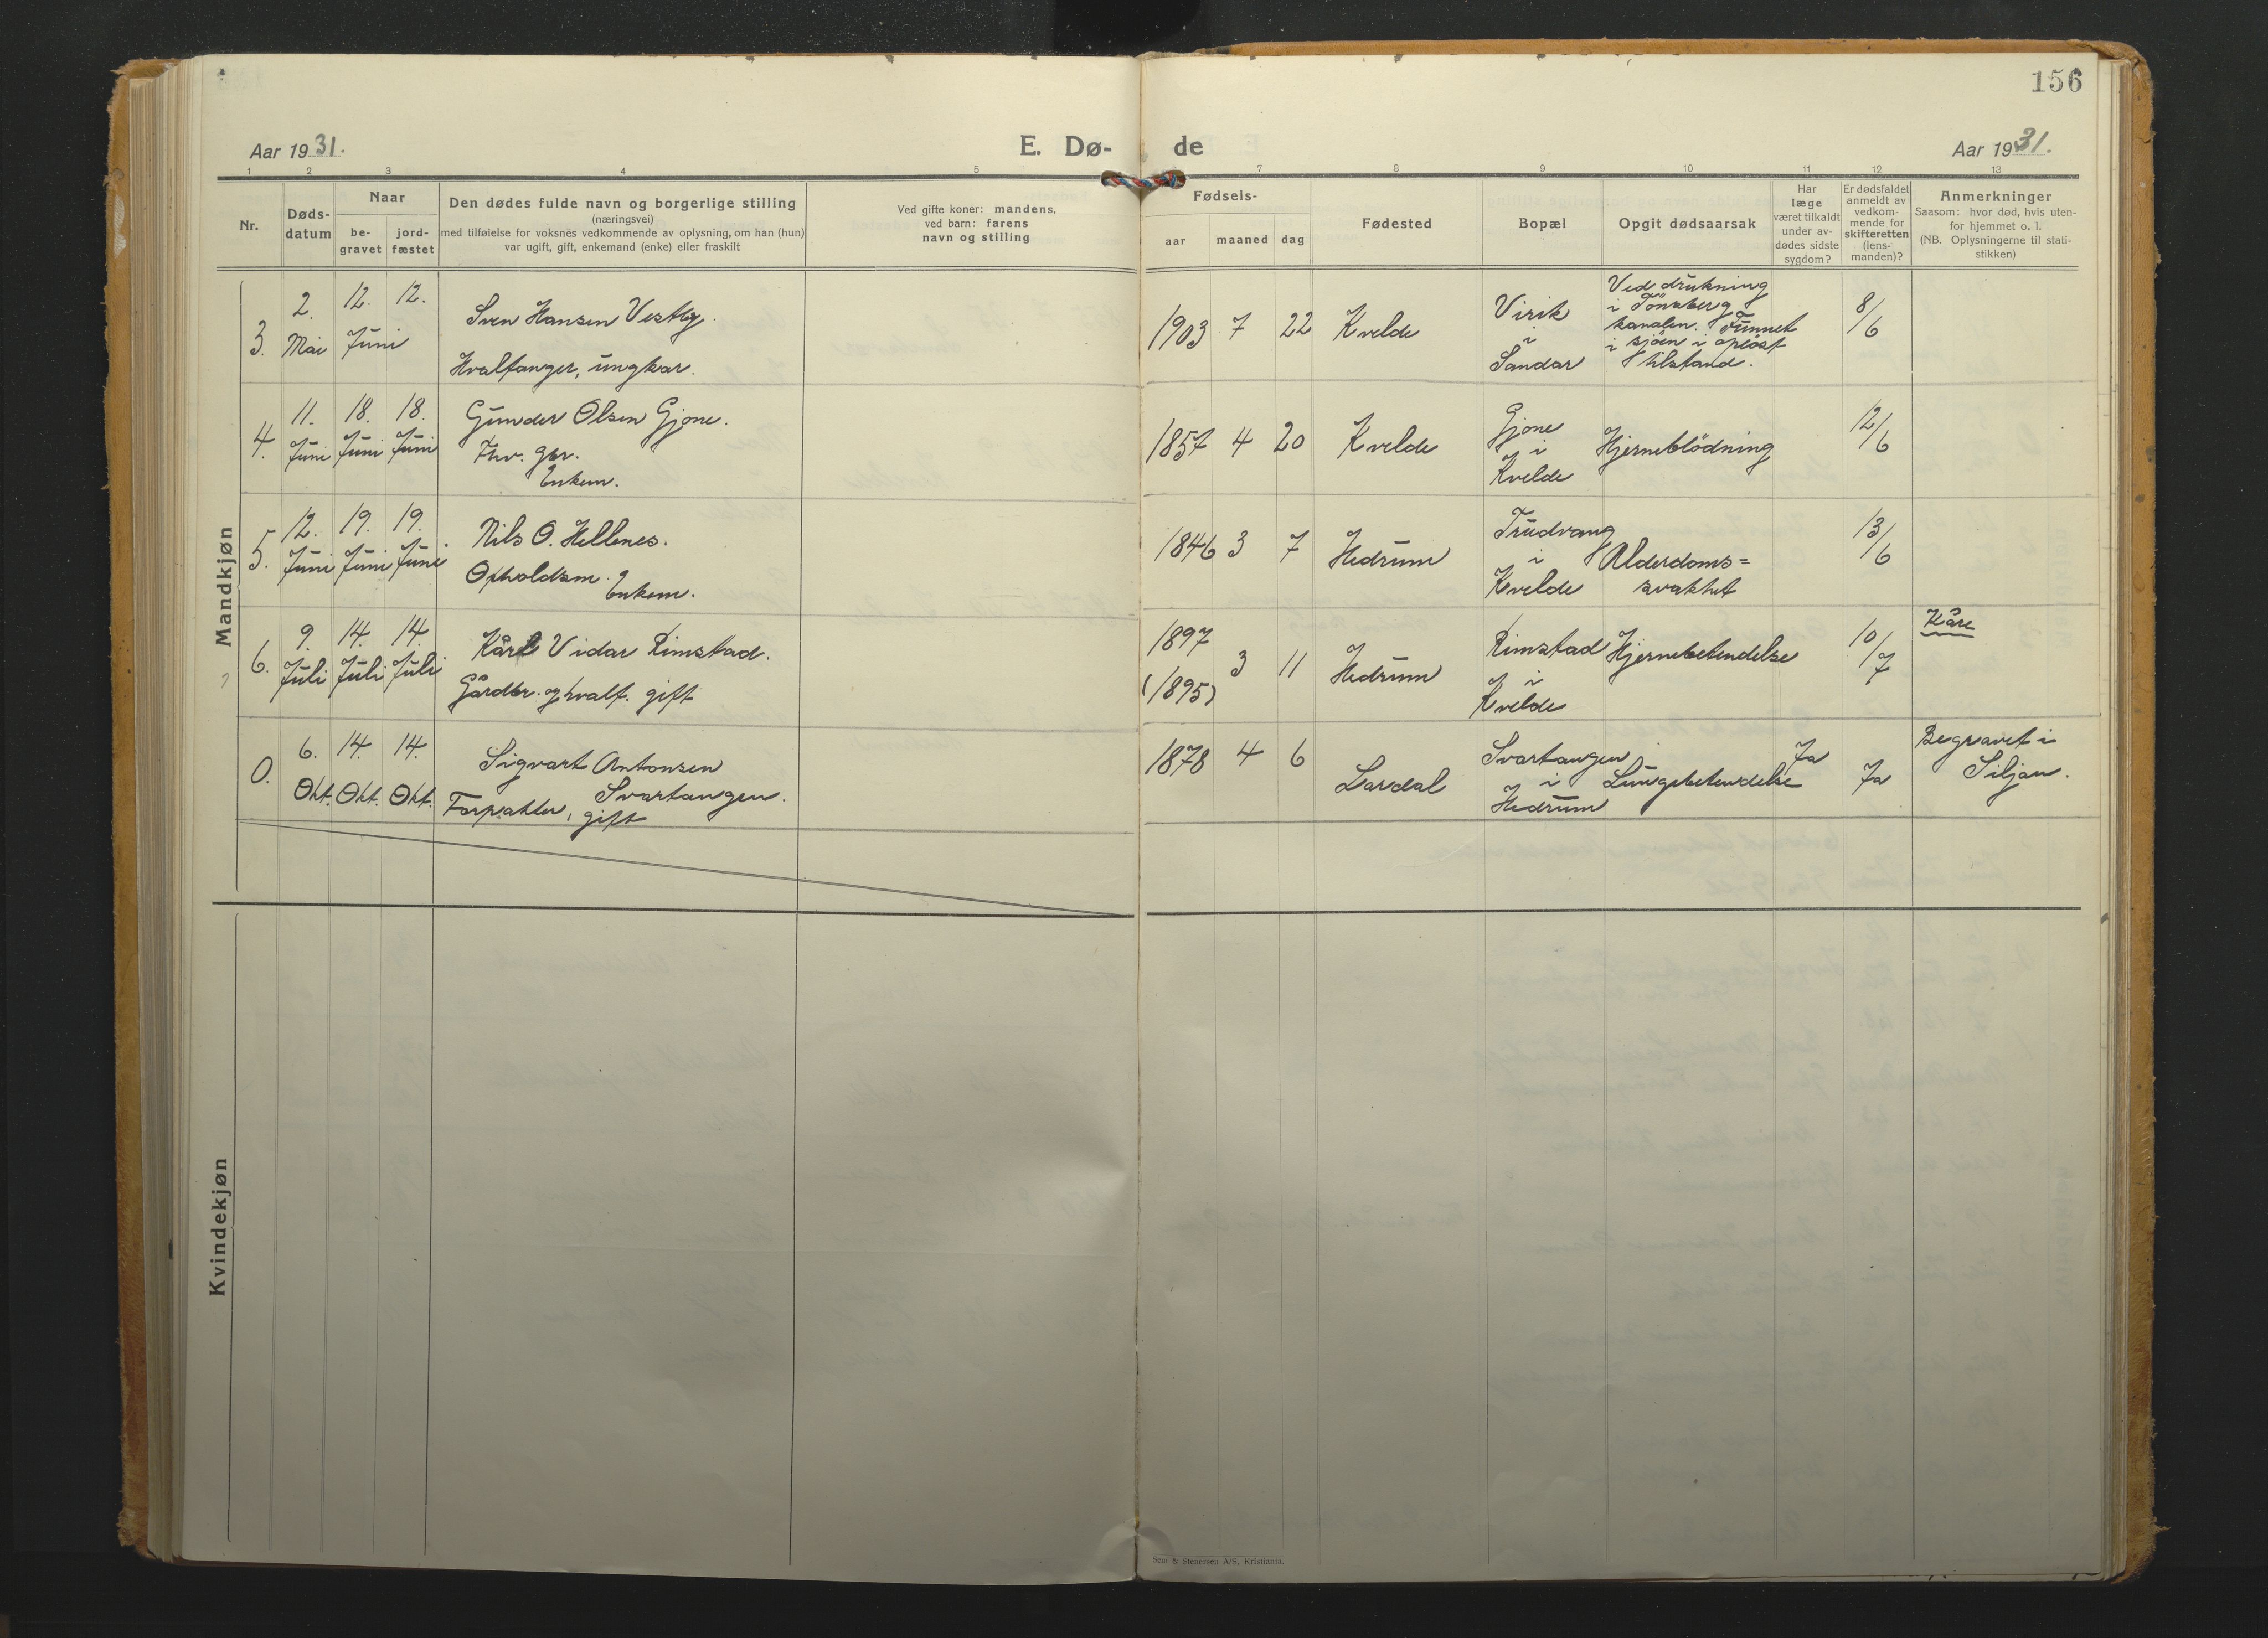 156
Aar 1931.
E. Dø-
de
Aar 1931.
1 2 3 4 5 7 8 9 10 11 12 13
Nr.
Døds-
datum
Naar
be-
gravet
jord-
fæstet
Den dødes fulde navn og borgerlige stilling
(næringsvei)
med tilføielse for voksnes vedkommende av oplysning, om han (hun)
var ugift, gift, enkemand (enke) eller fraskilt
Ved gifte koner: mandens,
ved barn: farens
navn og stilling
Fødsels-
aar
maaned
dag
Fødested
Bopæl
Opgit dødsaarsak
Har
læge
været tilkaldt
under av-
dødes sidste
sygdom?
Er dødsfaldet
anmeldt av
vedkom-
mende for
skifteretten
(lens-
manden)?
Anmerkninger
Saasom: hvor død, hvis uten-
for hjemmet o. l.
(NB. Oplysningerne til stati-
stikken)
Mandkjøn
3.
2.
Mai
12.
12.
Juni
Sven Hansen Vestby.
Hvalfanger, ungkar.
1903 7 22
Kvelde
Virik
i
Sandar
Ved drukning
i Tönsberg
kanalen. Funnet
i sjöen i oplöst
tilstand.
8/6
4.
11.
Juni
18.
Juni
18.
Juni
Gunder Olsen Gjone.
Fhv. gbr.
Enkem.
1857 4 20
Kvelde
Gjone
i
Kvelde
Hjerneblödning
12/6
5.
12.
Juni
19.
Juni
19.
Juni
Nils O. Hellenes.
Opholdsm. Enkem.
1846 3 7
Hedrum
Trudvang
i
Kvelde
Alderdoms=
svakhet
13/6
6.
9.
Juli
14.
Juli
14.
Juli
Kåre Vidar Rimstad.
Gårdbr. og hvalf. gift
1897
(1895)
3 11
Hedrum
Rimstad
i
Kvelde
Hjernebetendelse
10/7
Kåre
0.
6.
Okt.
14.
Okt.
14.
Okt.
Sigvart Antonsen
Svartangen.
Forpakter, gift
1878 4 6
Lardal
Svartangen
i
Hedrum
Lungebetendelse
Ja
Ja
Begravet i
Siljan.
Kvindekjøn
Sem & Stenersen A/S, Kristiania.